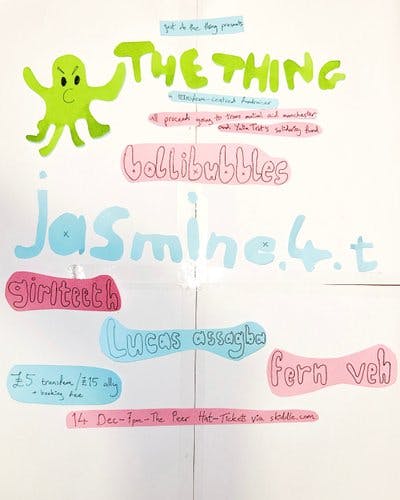 just do the thing presents
THE THING
a transfem-centred fundraiser
all proceeds going to trans mutual aid manchester
and Yulia Trot's solidarity fund
bollibubbles
jasmine.4.t
girlteeth
Lucas assagba
fern veh
£5 transfem/£15 ally
+ booking fee
14 Dec-7pm-The Peer Hat-Tickets via skiddle.com